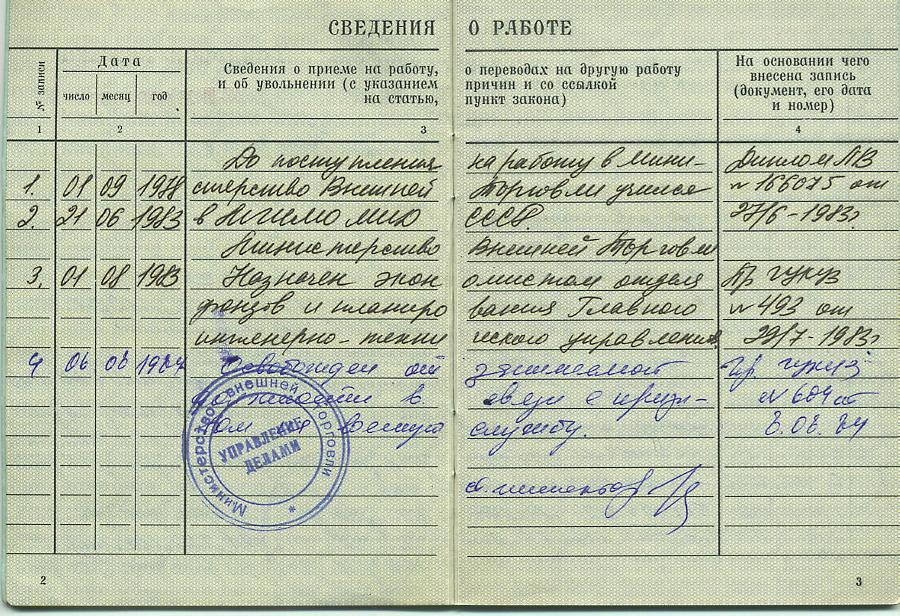 СВЕДЕНИЯ О РАБОТЕ
№ записи
Дата
число месяц год
Сведения о приеме на работу, о переводах на другую работу
и об увольнении (с указанием причин и со ссылкой
на статью, пункт закона)
На основании чего
внесена запись
(документ, его дата
и номер)
1 2 3 4
До поступления на работу в Мини- Диплом ЛВ
1. 01 09 1978 стерство Внешней Торговли учился № 166075 от
2. 21 06 1983 в МГИМО МИД СССР. 27/6-1983г
Министерство Внешней Торговли
3. 01 08 1983 Назначен экономистом отдела Пр ГУКУЗ
фондов и планирования Главного № 493 от
инженерно-технического управления 29/7-1983г
4 06 08 1984 Освобожден от занимаемой Пр. ГУКУЗ
должности в связи с призы- № 604 от
вом на военную службу. 8.08.84
Министерство внешней торговли
УПРАВЛЕНИЕ
ДЕЛАМИ
2 3